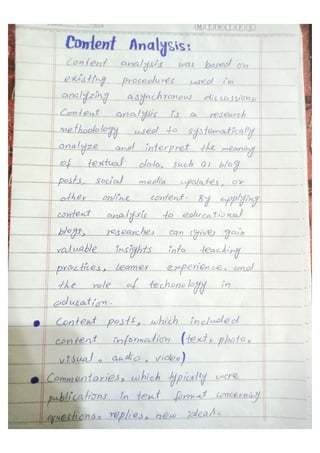 Content Analysis:
Content analysis was based on
existing procedures used in
analyzing asynchronous discussions.
Content analysis is a research
methodology used to systematically
analyze and interpret the meaning
of textual data, such as blog
posts, social media updates, or
other online content. By applying
content analysis to educational
blogs, researches can (give) gain
valuable insights into teaching
practices, learner experience, and
the role of techonology in
education.
Content posts, which included
content information (text, photo,
visual, audio, video)
Commentaries, which typically were
publications in text format concerning
questions, replies, new ideas.